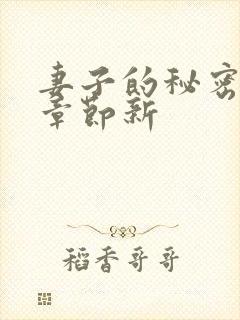 妻子的秘密
章節新
稻香哥哥